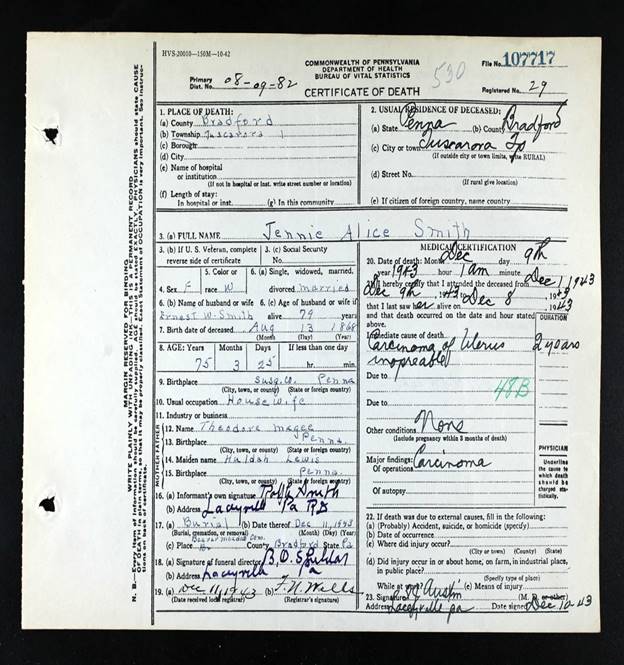 HVS-20010-150M-10-42
COMMONWEALTH OF PENNSYLVANIA
DEPARTMENT OF HEALTH
BUREAU OF VITAL STATISTICS
CERTIFICATE OF DEATH
530
File No. 107717
Primary Dist. No. 08-09-82
Registered No. 29
MARGIN RESERVED FOR BINDING
1. PLACE OF DEATH:
(a) County Bradford
(b) Township Tuscarora
(c) Borough
(d) City
(e) Name of hospital or institution
(If not in hospital or inst. write street number or location)
(f) Length of stay:
In hospital or inst. (g) In this community
2. USUAL RESIDENCE OF DECEASED:
(a) State Penna (b) County Bradford
(c) City or town Tuscarora Tp
(If outside city or town limits, write RURAL)
(d) Street No.
(If rural give location)
(e) If citizen of foreign country, name country
3. (a) FULL NAME Jennie Alice Smith
3. (b) If U. S. Veteran, complete reverse side of certificate
3. (c) Social Security No.
4. Sex F
5. Color or race W
6. (a) Single, widowed, married, divorced married
6. (b) Name of husband or wife Ernest W. Smith
6. (c) Age of husband or wife if alive 79 years
7. Birth date of deceased Aug 13 1868
(Month) (Day) (Year)
8. AGE: Years Months Days If less than one day
75 3 25 hr. min.
9. Birthplace Susq. Co. Penna
(City, town, or county) (State or foreign country)
10. Usual occupation Housewife
11. Industry or business
MOTHER FATHER
12. Name Theodore Magee
13. Birthplace Penna
(City, town, or county) (State or foreign country)
14. Maiden name Huldah Lewis
15. Birthplace Penna
(City, town, or county) (State or foreign country)
16. (a) Informant's own signature Ralph Smith
(b) Address Laceyville Pa RD
17. (a) Burial (b) Date thereof Dec 11, 1943
(Burial, cremation, or removal) (Month) (Day) (Year)
(c) Place Cem. County Bradford State Pa
18. (a) Signature of funeral director
(b) Address Laceyville Pa
19. (a) Dec 11, 1943 (b) F. N. Wells
(Date received local registrar) (Registrar's signature)
MEDICAL CERTIFICATION
20. Date of death: Month Dec day 9th
year 1943 hour 1 am minute
21. I hereby certify that I attended the deceased from Dec 1 1943
Dec 9th 1943
that I last saw her alive on Dec 8 1943
and that death occurred on the date and hour stated above.
DURATION
Immediate cause of death
Carcinoma of Uterus 2 years
inoperable
Due to
48B
Due to
Other conditions None
(Include pregnancy within 3 months of death)
PHYSICIAN
Underline the cause to which death should be charged statistically.
Major findings:
Of operations Carcinoma
Of autopsy
22. If death was due to external causes, fill in the following:
(a) (Probably) Accident, suicide, or homicide (specify)
(b) Date of occurrence
(c) Where did injury occur?
(City or town) (County) (State)
(d) Did injury occur in or about home, on farm, in industrial place, in public place?
(Specify type of place)
While at work? (e) Means of injury
23. Signature Austin (M. D. or other)
Address Laceyville Pa Date signed Dec 10-43